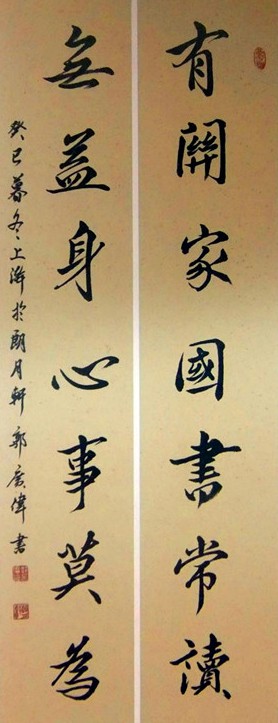 有關家國書常讀
無益身心事莫為
癸巳暮冬上浣於朗月軒郭廣偉書